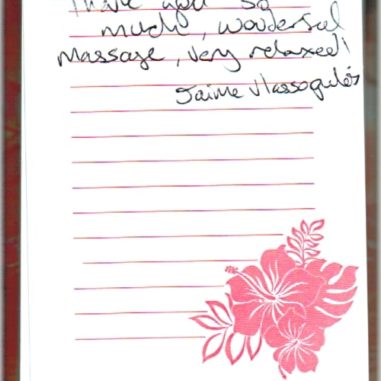 Thank you so
much, wonderful
massage, very relaxed!
Jaime